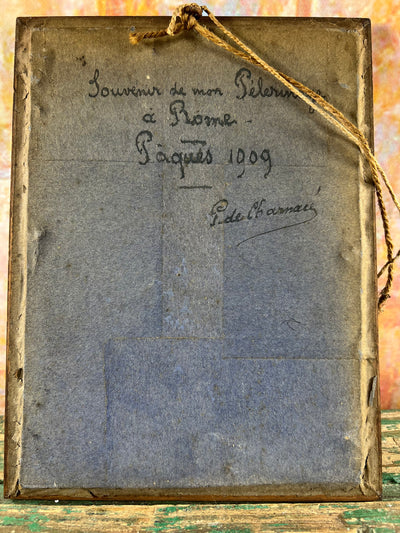 Souvenir de mon Pélerinage
à Rome -
Pâques 1909
P. de Charnacé